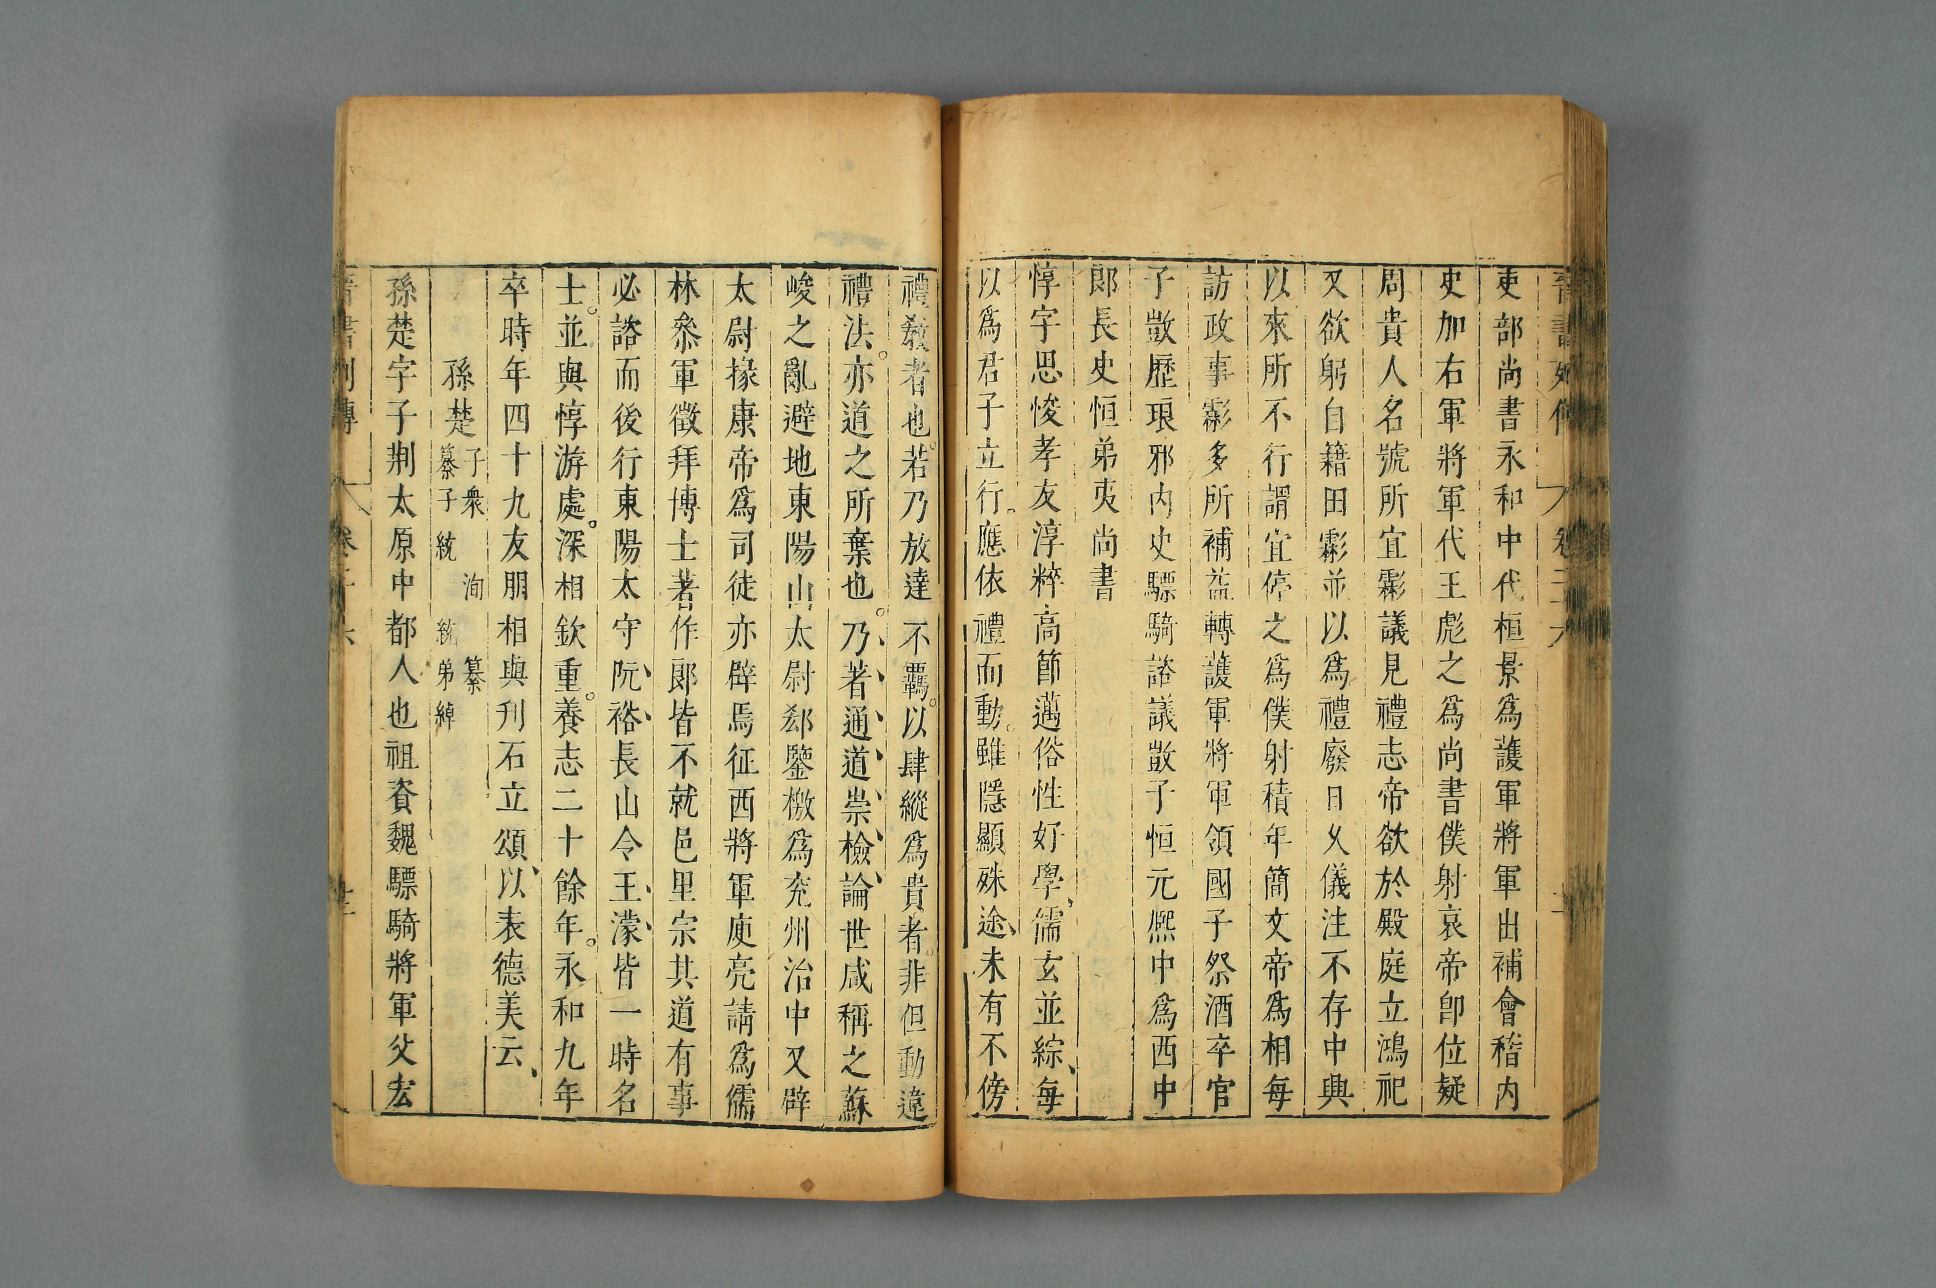 吏部尚書永和中代桓景爲護軍將軍出補會稽内
史加右軍將軍代王彪之爲尚書僕射哀帝卽位疑
周貴人名號所宜霦議見禮志帝欲於殿庭立鴻祀
又欲躬自籍田霦並以爲禮廢日乆儀注不存中興
以來所不行謂宜停之爲僕射積年簡文帝爲相每
訪政事霦多所補益轉護軍將軍領國子祭酒卒官
子敳歷琅邪内史驃騎諮議敳子恒元熈中爲西中
郎長史恒弟夷尚書
惇字思悛孝友淳粹高節邁俗性好學儒玄並綜每
以爲君子立行。應依禮而動。雖隱顯殊途、未有不傍
禮教者也。若乃放達不羈。以肆縱爲貴者。非但動違
禮法。亦道之所棄也。乃、著、通、道、崇、檢、論世咸稱之蘇
峻之亂避地東陽山太尉郄鑒檄爲兖州治中又辟
太尉掾康帝爲司徒亦辟焉征西將軍庾亮請爲儒
林叅軍徵拜博士著作郎皆不就邑里宗其道有事
必諮而後行東陽太守阮、裕、長山令王、濛、皆一時名
士。並與惇游處。深相欽重。養志二十餘年。永和九年
卒時年四十九友朋相與刋石立頌、以表德美云、
孫楚 子衆 洵 纂
纂子統 統弟綽
孫楚字子荆太原中都人也祖資魏驃騎將軍父宏
晉書列傳 卷二十六